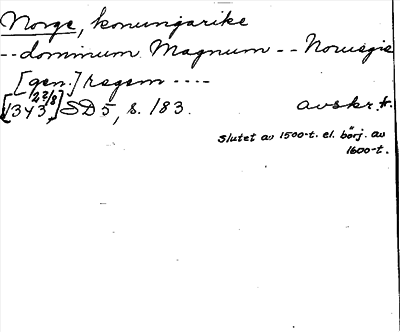 Norge, konungarike
-- dominum Magnum -- Noruegie
[gen.] regem ----
[1343 22/8,] SD 5, s. 183. avskr. fr.
Slutet av 1500-t. el. börj. av
1600-t.